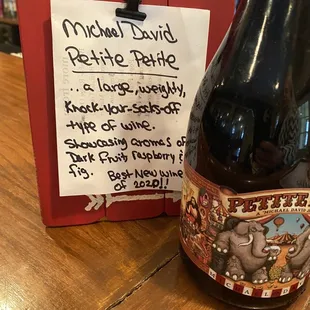 Michael David
Petite Petite
.. a large, weighty,
knock-your-socks-off
type of wine.
Showcasing aromas of
Dark fruit raspberry &
fig. Best New Wine
of 2020!!
PETITE
MICHAEL DAVID